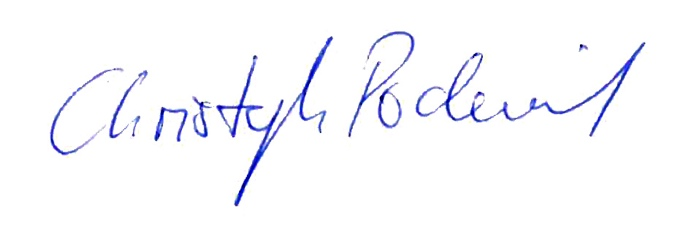 Christoph Podewils